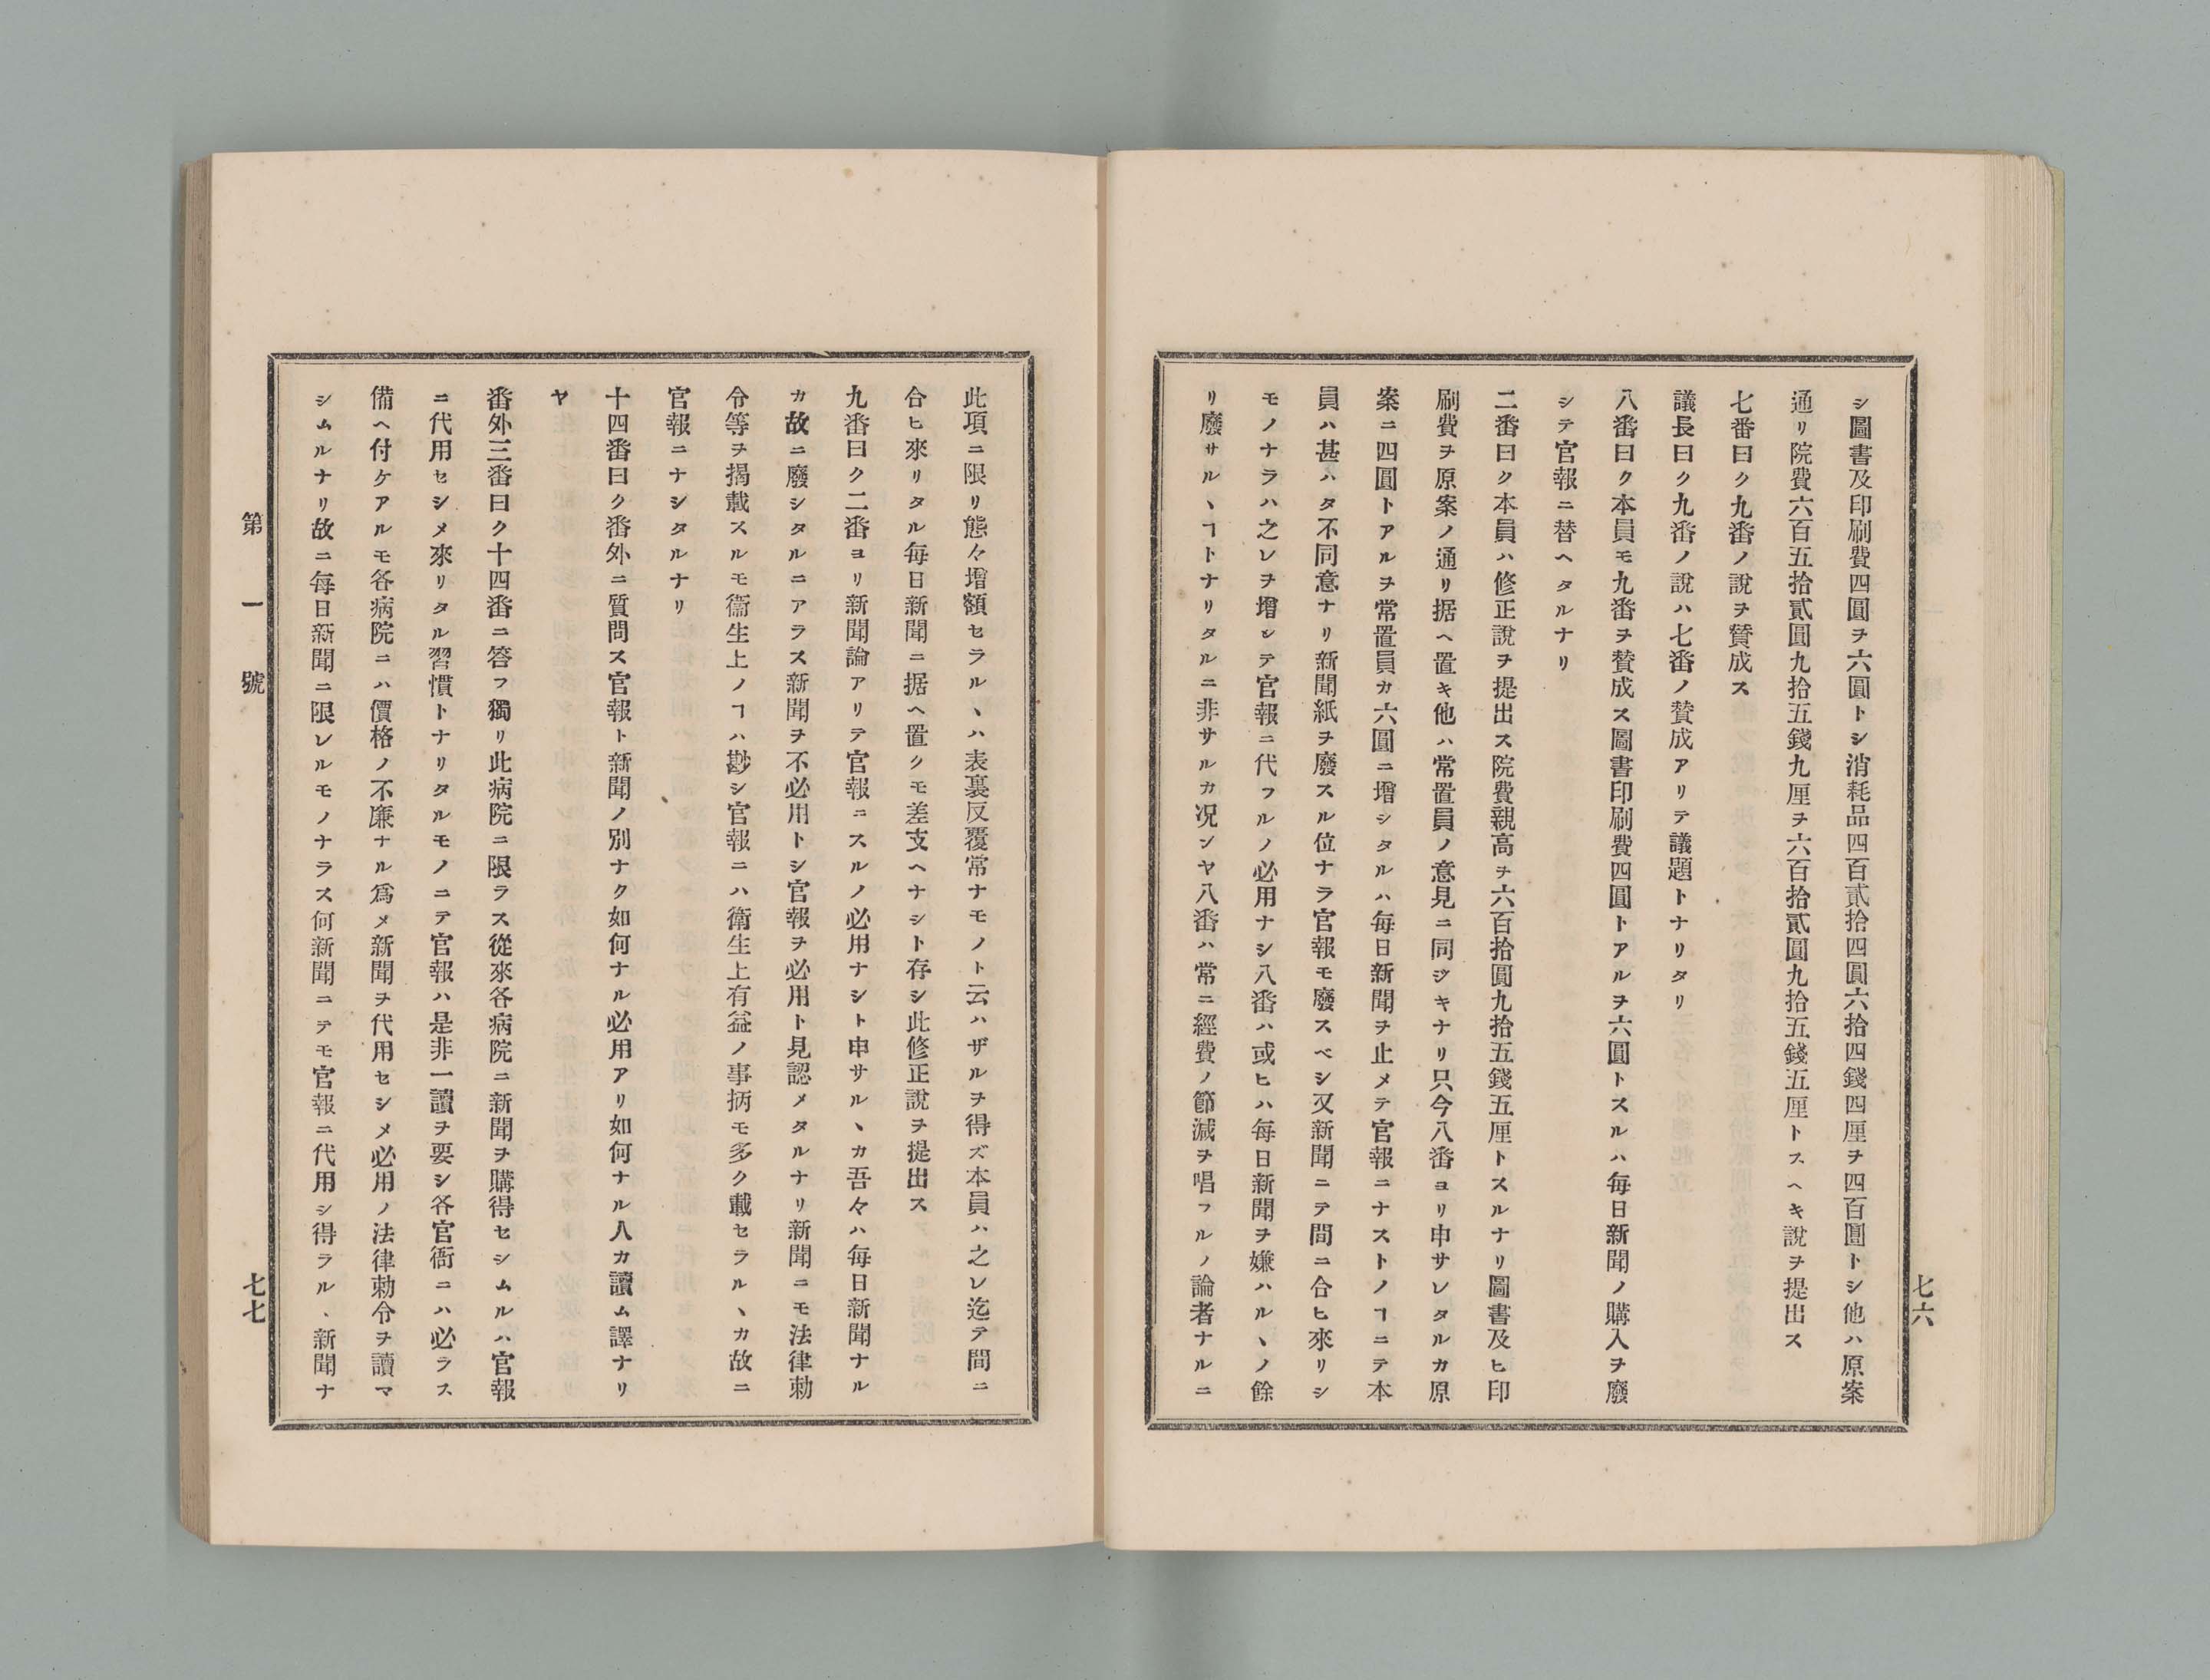 七六
シ圖書及印刷費四圓ヲ六圓トシ消耗品四百貳拾四圓六拾四錢四厘ヲ四百圓トシ他ハ原案
通リ院費六百五拾貳圓九拾五錢九厘ヲ六百拾貳圓九拾五錢五厘トスヘキ說ヲ提出ス
七番曰ク九番ノ說ヲ賛成ス
議長曰ク九番ノ說ハ七番ノ賛成アリテ議題トナリタリ
八番曰ク本員モ九番ヲ賛成ス圖書印刷費四圓トアルヲ六圓トスルハ每日新聞ノ購入ヲ廢
シテ官報ニ替ヘタルナリ
二番曰ク本員ハ修正說ヲ提出ス院費親高ヲ六百拾圓九拾五錢五厘トスルナリ圖書及ヒ印
刷費ヲ原案ノ通リ据ヘ置キ他ハ常置員ノ意見ニ同ジキナリ只今八番ヨリ申サレタルカ原
案ニ四圓トアルヲ常置員カ六圓ニ增シタルハ每日新聞ヲ止メテ官報ニナストノヿニテ本
員ハ甚ハタ不同意ナリ新聞紙ヲ廢スル位ナラ官報モ廢スベシ又新聞ニテ間ニ合ヒ來リシ
モノナラハ之レヲ增シテ官報ニ代フルノ必用ナシ八番ハ或ヒハ每日新聞ヲ嫌ハルヽノ餘
リ廢サルヽヿトナリタルニ非サルカ况ンヤ八番ハ常ニ經費ノ節減ヲ唱フルノ論者ナルニ
此項ニ限リ態々增額セラルヽハ表裏反覆常ナキモノト云ハザルヲ得ズ本員ハ之レ迄テ間ニ
合ヒ來リタル每日新聞ニ据ヘ置クモ差支ヘナシト存シ此修正說ヲ提出ス
九番曰ク二番ヨリ新聞論アリテ官報ニスルノ必用ナシト申サルヽカ吾々ハ每日新聞ナル
カ故ニ廢シタルニアラス新聞ヲ不必用トシ官報ヲ必用ト見認メタルナリ新聞ニモ法律勅
令等ヲ揭載スルモ衞生上ノヿハ尠シ官報ニハ衛生上有益ノ事抦モ多ク載セラルヽカ故ニ
官報ニナシタルナリ
十四番曰ク番外ニ質問ス官報ト新聞ノ別ナク如何ナル必用アリ如何ナル人カ讀ム譯ナリ
ヤ
番外三番曰ク十四番ニ答フ獨リ此病院ニ限ラス從來各病院ニ新聞ヲ購得セシムルハ官報
ニ代用セシメ來リタル習慣トナリタルモノニテ官報ハ是非一讀ヲ要シ各官衙ニハ必ラス
備ヘ付ケアルモ各病院ニハ價格ノ不廉ナル爲メ新聞ヲ代用セシメ必用ノ法律勅令ヲ讀マ
シムルナリ故ニ每日新聞ニ限レルモノナラス何新聞ニテモ官報ニ代用シ得ラルヽ新聞ナ
第一號
七七